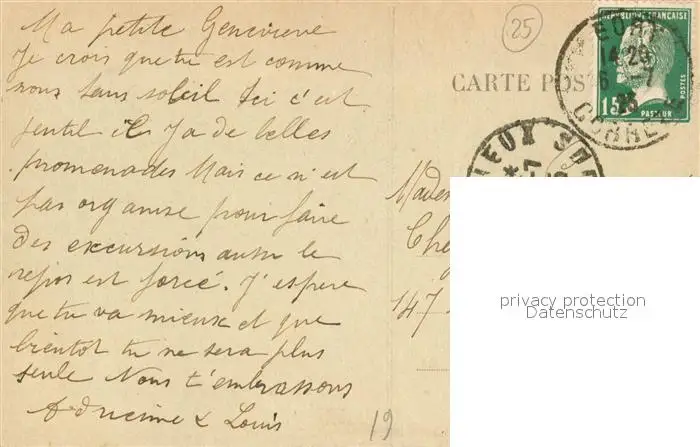 Ma petite Genevieve
Je crois que tu est comme
nous sans soleil Ici c'est
gentil il y a de belles
promenades Mais ce n'est
pas organise pour faire
des excursions aussi le
repos est forcé. J'espere
que tu va mieux et que
bientot tu ne sera plus
seule Nous t'embrassons
& Louis
25
CARTE POS
REPUBLIQUE FRANÇAISE
15
POSTES
PASTEUR
14 29
6 -7
CORRE
IEUX
Made
Che
147
privacy protection
Datenschutz
19